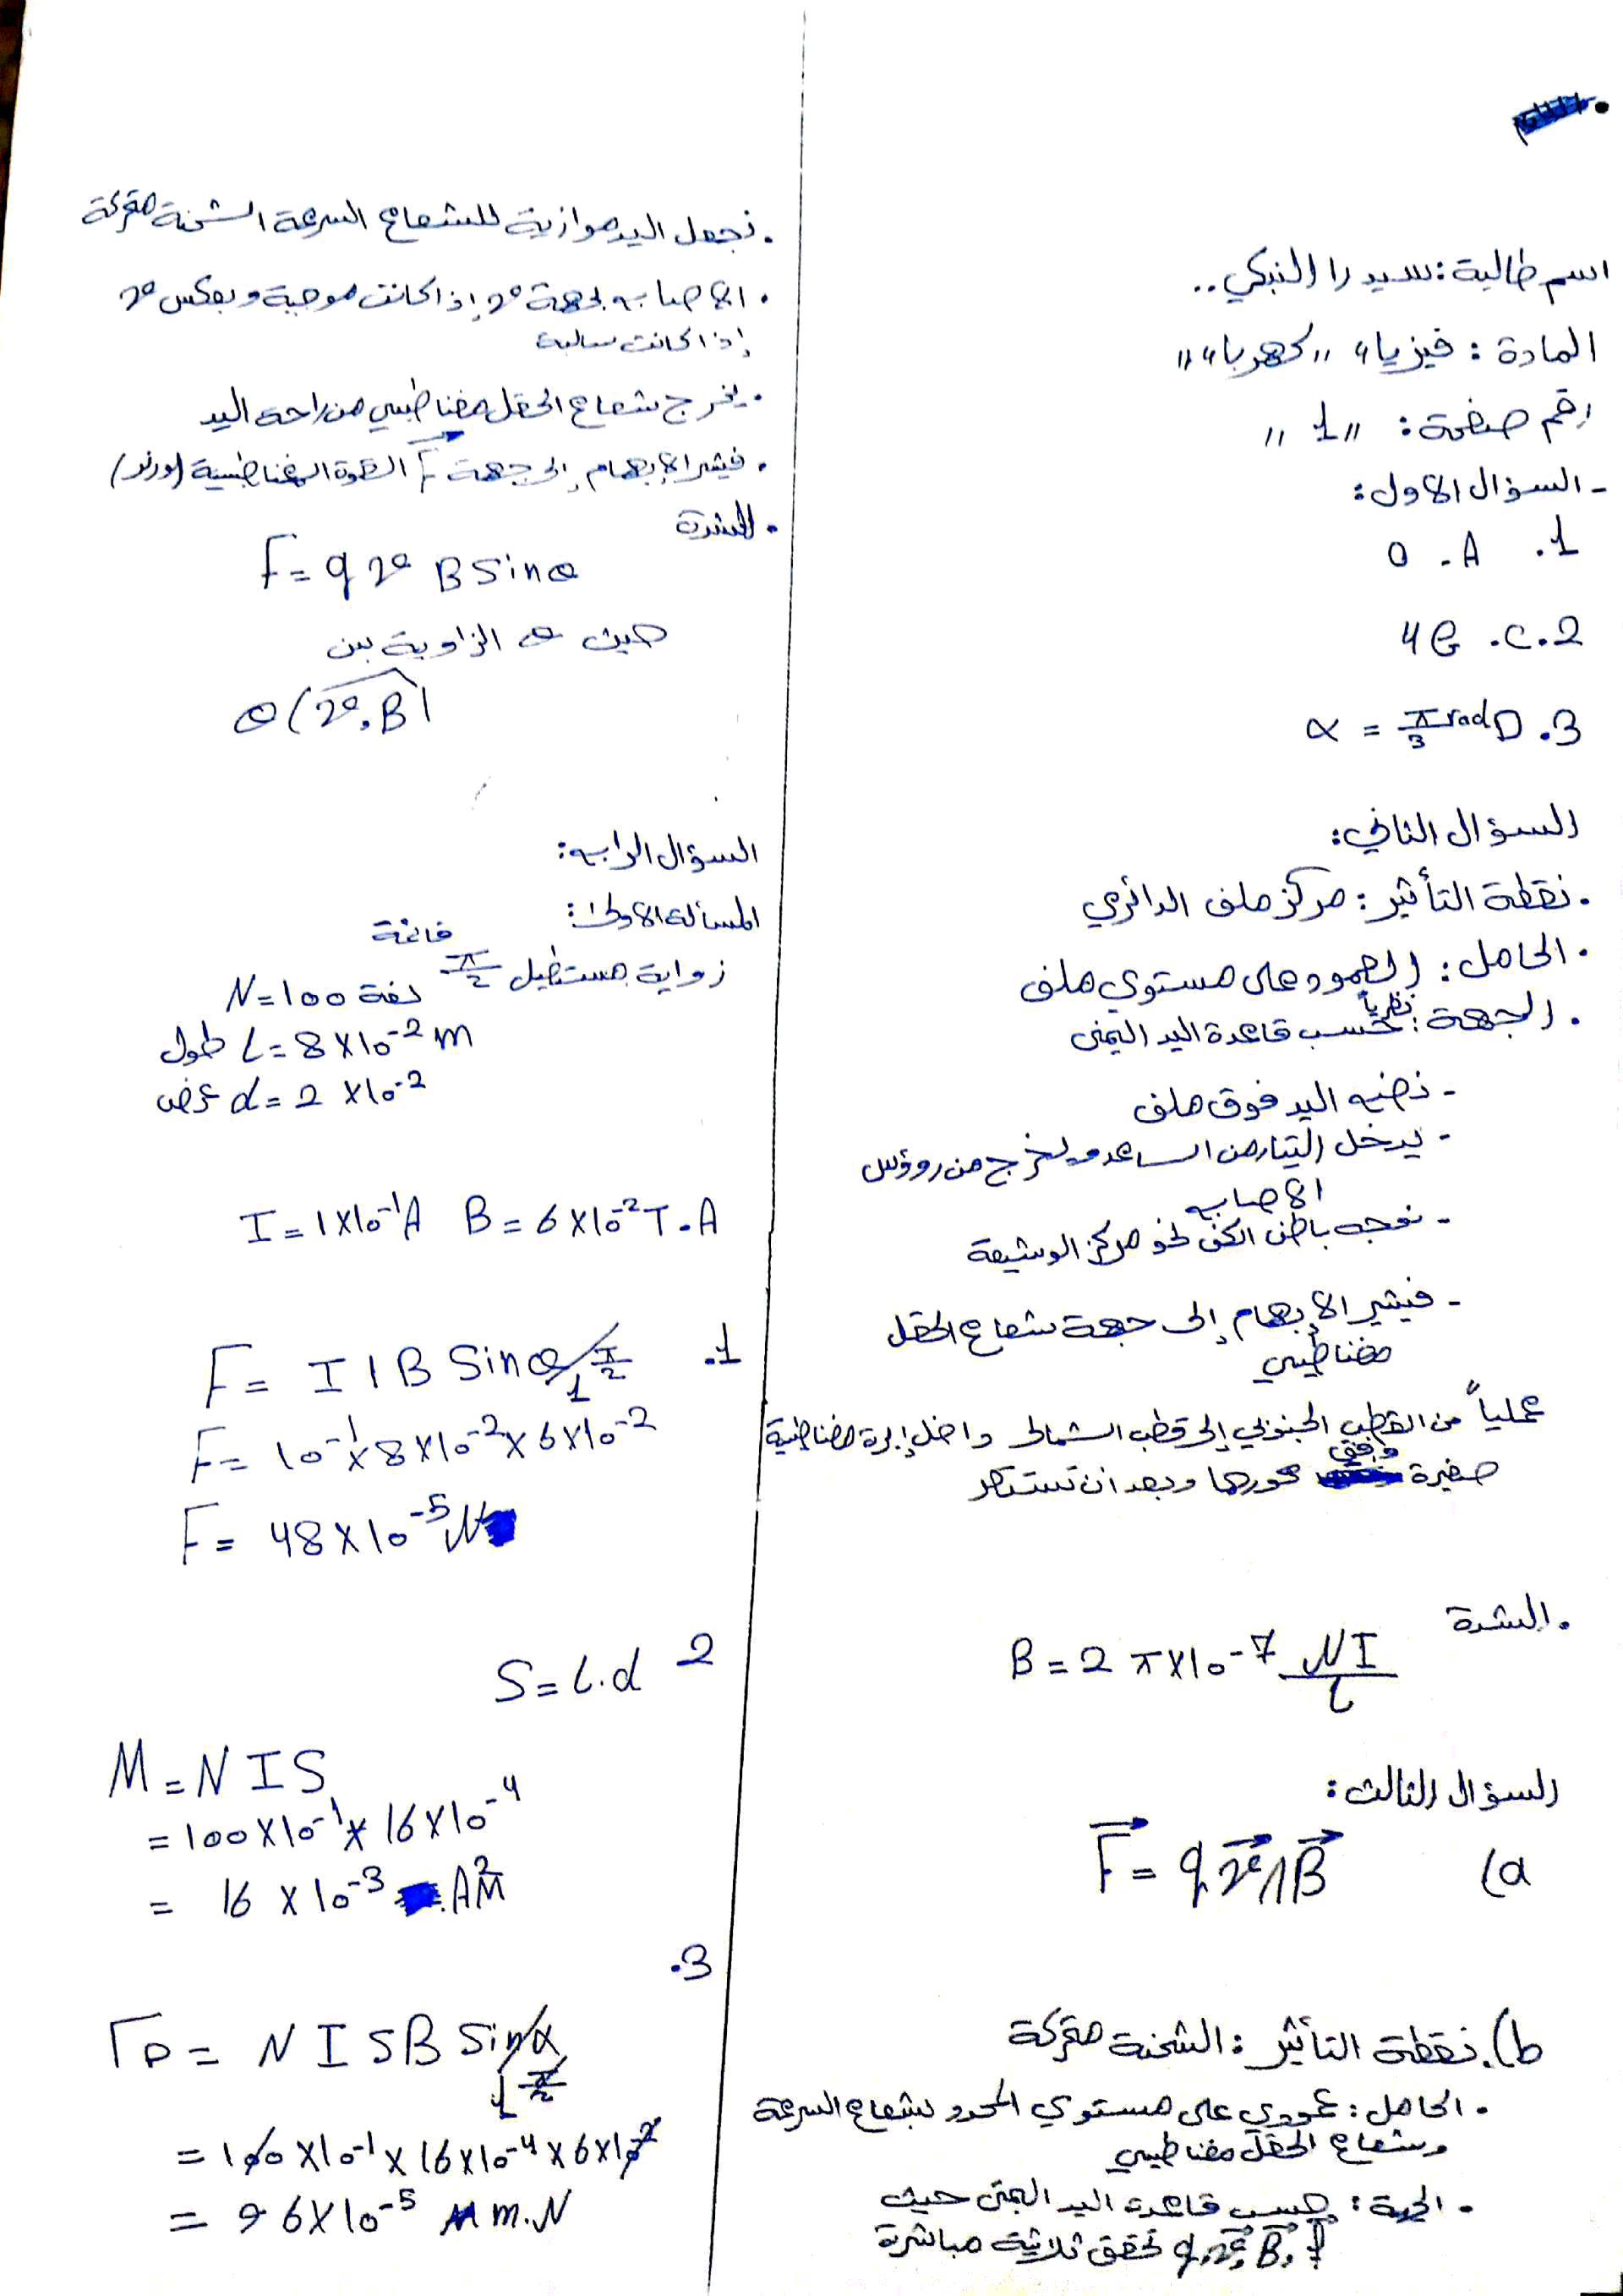 اسم طالبة: سيدرا النبكي..
المادة: فيزياء "كهرباء"
رقم صفحة: "1"
- السؤال الاول:
1. A. 0
2. C. 4B
3. D α = π/3 rad
السؤال الثاني:
. نقطة التأثير: مركز ملف الدائري
. الحامل: العمود على مستوي ملف
. الجهة: نظرياً حسب قاعدة اليد اليمنى
- نضع اليد فوق ملف
- يدخل التيار من الساعد ويخرج من رووس
الاصابع
- نوجه باطن الكف نحو مركز الوشيعة
- فيشير الإبهام إلى جهة شعاع الحقل
مغناطيسي
عملياً من القطب الجنوبي إلى قطب الشمالي داخل إبرة مغناطيسية
صغيرة وافق محورها وبعد ان تستقر
. الشدة
B = 2π×10⁻⁷ NI/r
السؤال الثالث:
a) F⃗ = q v⃗ ∧ B⃗
b). نقطة التأثير: الشحنة متحركة
. الحامل: عمودي على مستوي المحدد بشعاع السرعة
وشعاع الحقل مغناطيسي
. الجهة: حسب قاعدة اليد اليمنى حيث
q.v⃗, B⃗, F⃗ تحقق ثلاثية مباشرة
. نجعل اليد موازية للشعاع السرعة الشحنة متحركة
. الاصابع بجهة v إذا كانت موجبة وبعكس v
إذا كانت سالبة
. يخرج شعاع الحقل مغناطيسي من راحة اليد
. فيشير الإبهام إلى جهة F⃗ القوة المغناطيسية (لورنز)
. الشدة
F = q v B sin θ
حيث θ الزاوية بين
θ(v.B)
السؤال الرابع:
المسألة الاولى:
زواية مستطيل π/2 قائمة
N = 100 لفة
L = 8×10⁻² m طول
d = 2×10⁻² عرض
I = 1×10⁻¹A B = 6×10⁻² T.A
1. F = I l B Sin θ π/2 1
F = 10⁻¹×8×10⁻²×6×10⁻²
F = 48×10⁻⁵ N
2 S = L.d
M = N I S
= 100×10⁻¹×16×10⁻⁴
= 16×10⁻³ .AM²
3.
ΓΔ = N I S B Sin α π/2 1
= 100×10⁻¹×16×10⁻⁴×6×10⁻²
= 96×10⁻⁵ m.N